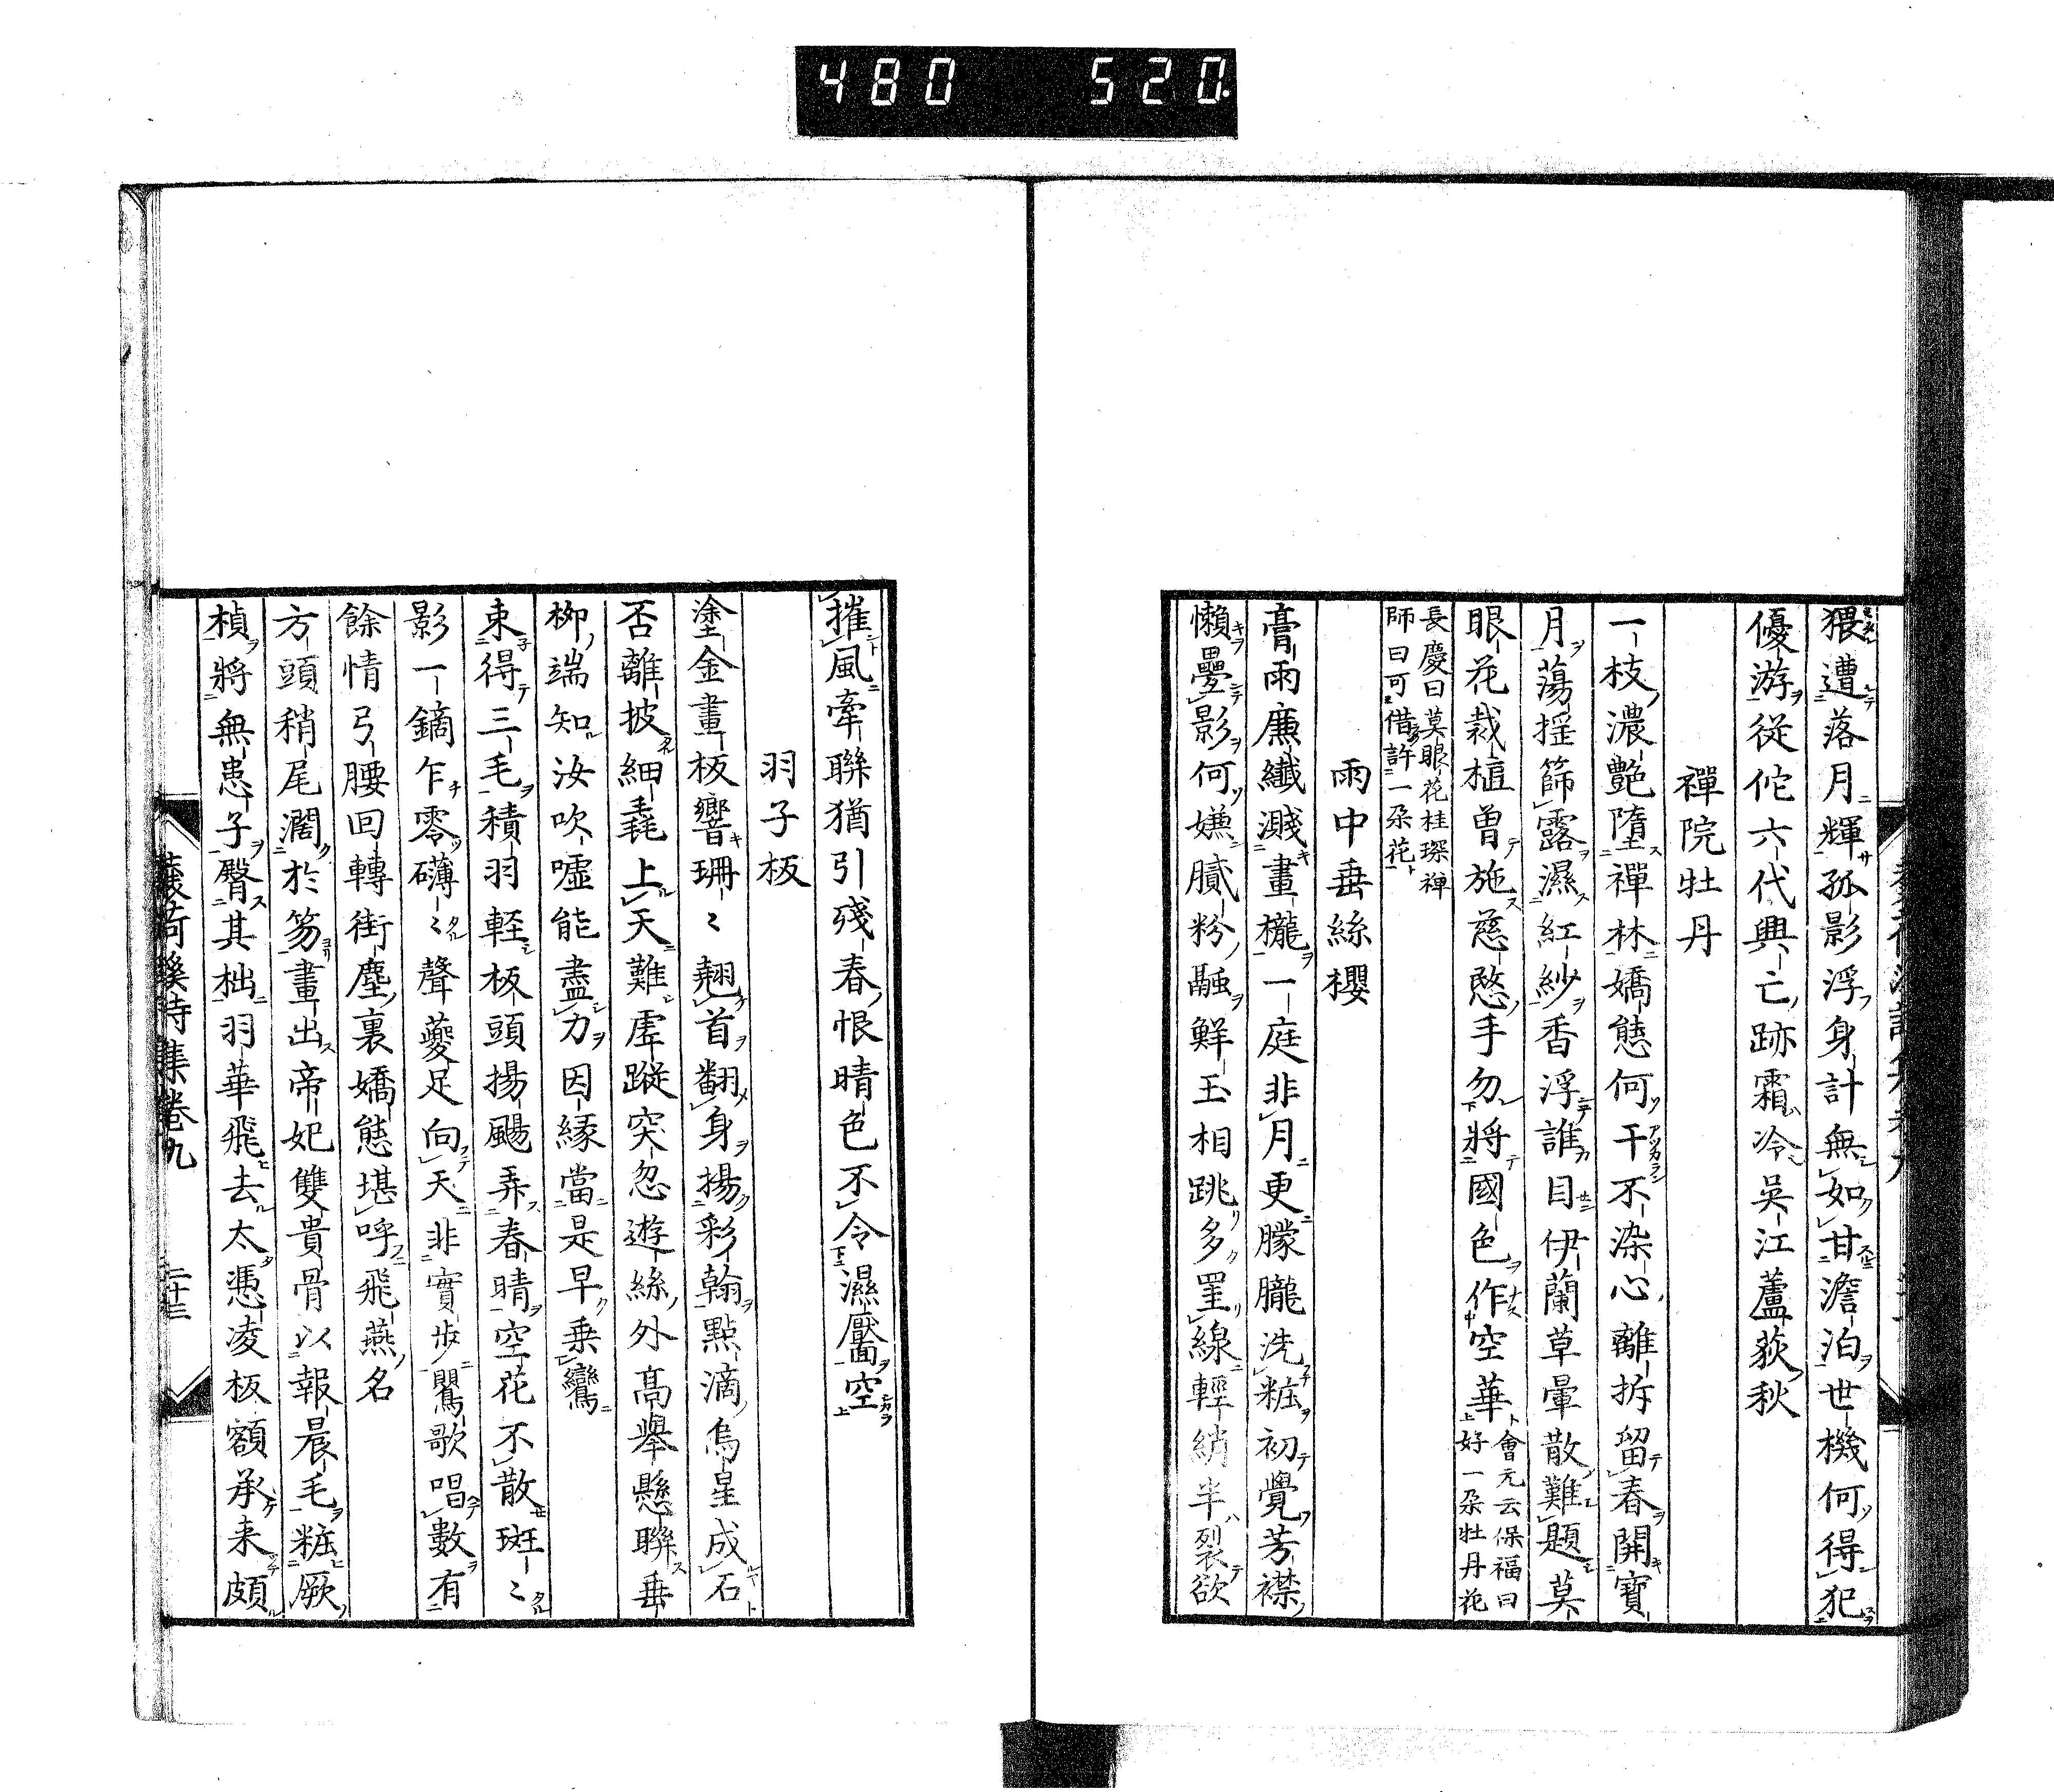 480 520.
猥遭落月輝孤影浮身計無如甘澹泊世機何得犯
優游從佗六代興亡跡霜冷吳江蘆荻秋
禪院牡丹
一枝濃艶墮禪林嬌態何干不染心離拆留春開寶
月蕩揺篩露濕紅紗香浮誰目伊蘭草暈散難題莫
眼花裁植曽施慈愍手勿將國色作空華會元云保福曰
好一朶牡丹花
長慶曰莫眼花桂琛禅
師曰可借許一朶花
雨中垂絲櫻
膏雨廉纖濺畫櫳一庭非月更朦朧洗粧初覺芳襟
懶疊影何嫌膩粉融鮮玉相跳多罣線輕綃半裂欲
摧風牽聯猶引殘春恨晴色不令濕靨空
羽子板
塗金畫板響珊〻翹首翻身揚彩翰點滴烏星成石
否離披細毳上天難虖蹤突忽遊絲外高擧懸聯垂
柳端知汝吹噓能盡力因緣當是早乗鸞
束得三毛積羽輕板頭揚颺弄春晴空花不散斑〻
影一鏑乍零礴〻聲夔足向天非實歩鸎歌唱數有
餘情弓腰回轉街塵裏嬌態堪呼飛燕名
方頭稍尾濶於笏畫出帝妃雙貴骨以報晨毛粧厥
楨將無患子臀其柮羽華飛去太憑凌板額承来頗
蘐荷溪詩集卷九 二十三